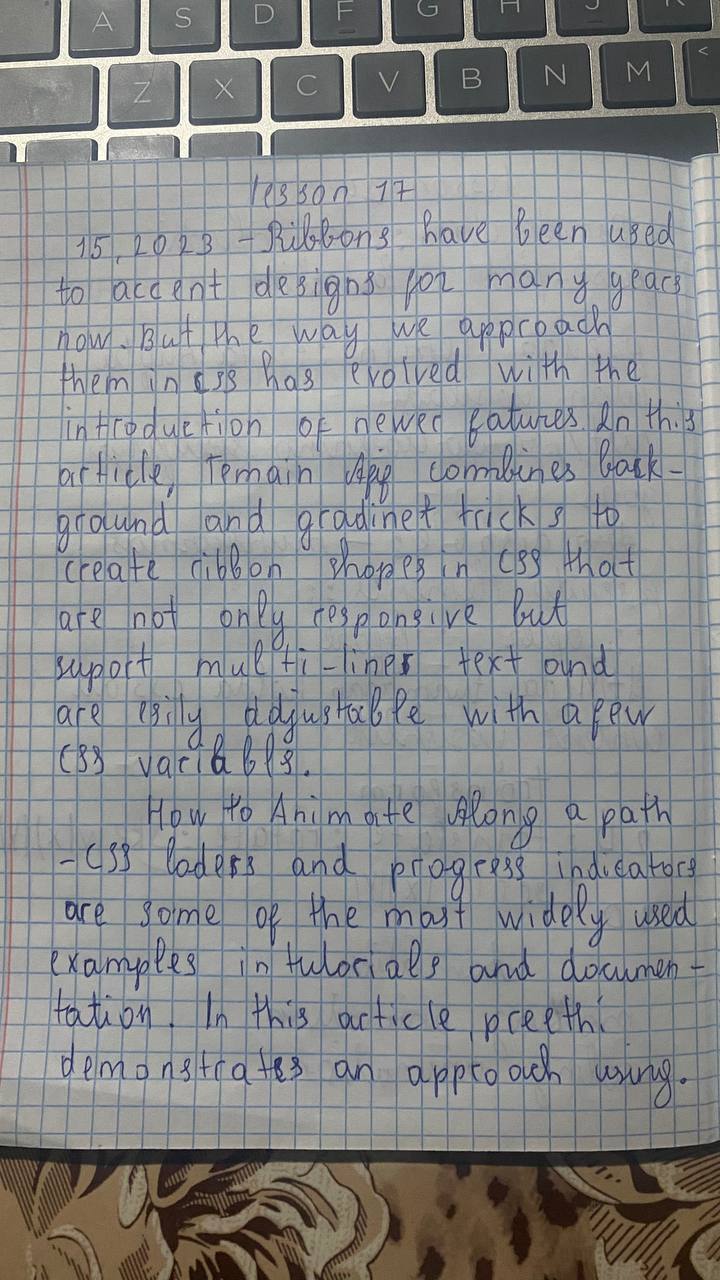 A S D F G H J K
Z X C V B N M <
lesson 17
15, 2023 - Ribbons have been used
to accent designs for many years
now. But the way we approach
them in css has evolved with the
introduction of newer fatures. In this
article, Temain Afif combines back-
ground and gradinet tricks to
create ribbon shopes in CSS that
are not only responsive but
suport multi-lines text and
are esily adjustable with a few
CSS variabls.
How to Animate Along a path
- CSS loders and progress indicators
are some of the most widely used
examples in tutorials and documen-
tation. In this article, preethi
demonstrates an approach using.